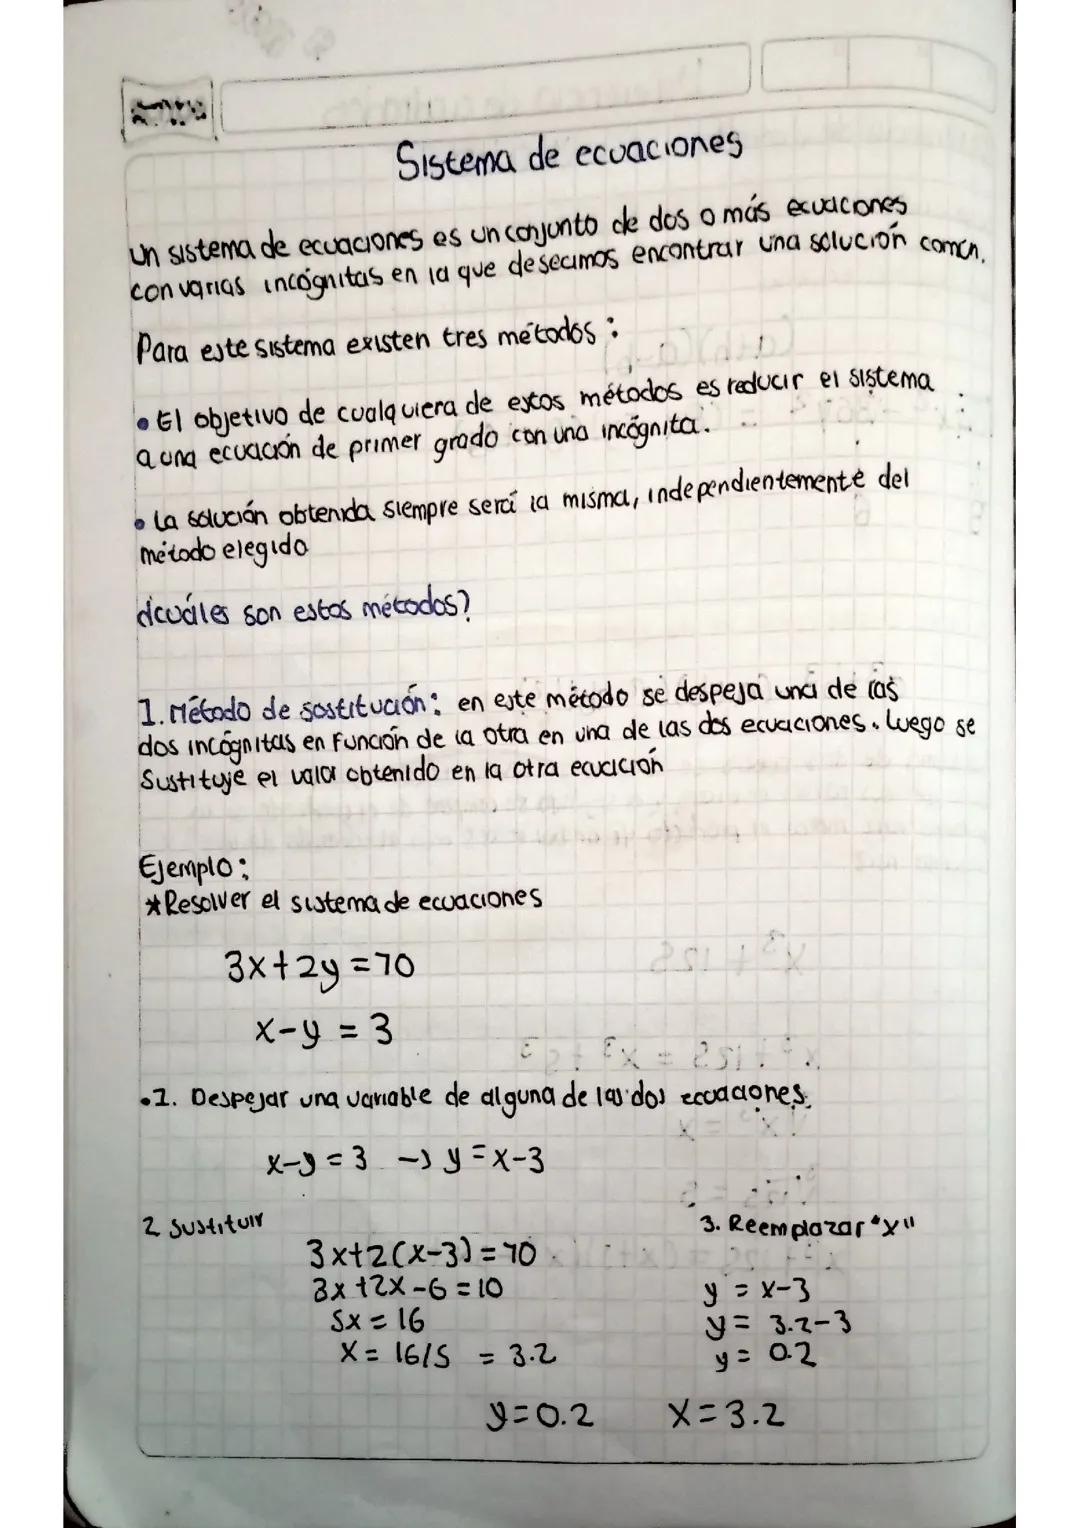 Sistema de ecuaciones
Un sistema de ecuaciones es un conjunto de dos o más ecuaciones
con varias incógnitas en la que deseamos encontrar una solución común.
Para este sistema existen tres métodos:
• El objetivo de cualquiera de estos métodos es reducir el sistema
a una ecuación de primer grado con una incógnita.
• La solución obtenida siempre será la misma, independientemente del
método elegido
¿cuáles son estos métodos?
1. Método de sostitución: en este método se despeja una de las
dos incógnitas en función de la otra en una de las dos ecuaciones. Luego se
Sustituye el valor obtenido en la otra ecuación
Ejemplo:
*Resolver el sistema de ecuaciones
3x+2y=10
x-y=3
•1. Despejar una variable de alguna de las dos ecuaciones.
x-y=3 → y=x-3
2 Sustituir
3. Reemplazar "x"
3x+2(x-3)=10
3x+2x-6=10
y=x-3
5x=16
y=3.2-3
x=16/5 =3.2
y=0.2
y=0.2 x=3.2